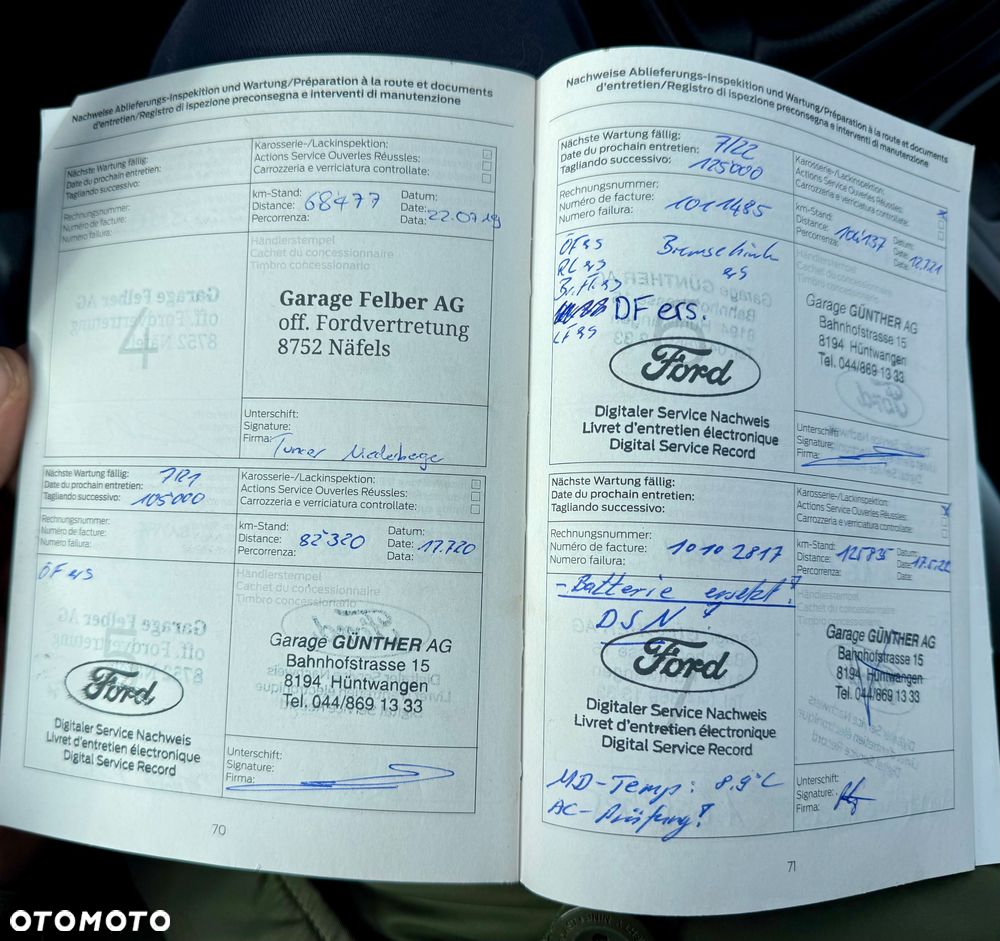 Nachweise Ablieferungs-Inspekition und Wartung/Préparation à la route et documents
d'entretien/Registro di ispezione preconsegna e interventi di manutenzione
Nächste Wartung fällig:
Date du prochain entretien:
Tagliando successivo:
Karosserie-/Lackinspektion:
Actions Service Ouverles Réussles:
Carrozzeria e verriciatura controllate:
Rechnungsnummer:
Numéro de facture:
Numero failura:
km-Stand:
Distance: 68477
Percorrenza:
Datum:
Date: 22.07.19
Data:
Händlerstempel
Cachet du concessionnaire
Timbro concessionario
Garage Felber AG
off. Fordvertretung
8752 Näfels
Unterschift:
Signature:
Firma:
Nächste Wartung fällig: 7/21
Date du prochain entretien:
Tagliando successivo: 105'000
Karosserie-/Lackinspektion:
Actions Service Ouverles Réussles:
Carrozzeria e verriciatura controllate:
Rechnungsnummer:
Numéro de facture:
Numero failura:
km-Stand:
Distance: 82'320
Percorrenza:
Datum:
Date: 17.7.20
Data:
ÖF ers
Händlerstempel
Cachet du concessionnaire
Timbro concessionario
Garage GÜNTHER AG
Bahnhofstrasse 15
8194 Hüntwangen
Tel. 044/869 13 33
Ford
Digitaler Service Nachweis
Livret d'entretien électronique
Digital Service Record
Unterschift:
Signature:
Firma:
70
Nachweise Ablieferungs-Inspekition und Wartung/Préparation à la route et documents
d'entretien/Registro di ispezione preconsegna e interventi di manutenzione
Nächste Wartung fällig: 7/22
Date du prochain entretien:
Tagliando successivo: 125'000
Karosserie-/Lackinspektion:
Actions Service Ouverles Réussles:
Carrozzeria e verriciatura controllate:
Rechnungsnummer:
Numéro de facture: 1011485
Numero failura:
km-Stand:
Distance: 104'137
Percorrenza:
Datum:
Date: 12.7.21
Data:
ÖF ers
RL ers
Br.Fl. ers
DF ers.
LF ers
ers
Händlerstempel
Cachet du concessionnaire
Timbro concessionario
Garage GÜNTHER AG
Bahnhofstrasse 15
8194 Hüntwangen
Tel. 044/869 13 33
Ford
Digitaler Service Nachweis
Livret d'entretien électronique
Digital Service Record
Unterschift:
Signature:
Firma:
Nächste Wartung fällig:
Date du prochain entretien:
Tagliando successivo:
Karosserie-/Lackinspektion:
Actions Service Ouverles Réussles:
Carrozzeria e verriciatura controllate:
Rechnungsnummer:
Numéro de facture: 1010 2817
Numero failura:
km-Stand:
Distance: 125835
Percorrenza:
Datum:
Date: 17.5.22
Data:
- Batterie ersetzt!
DSN!
Händlerstempel
Cachet du concessionnaire
Timbro concessionario
Garage GÜNTHER AG
Bahnhofstrasse 15
8194 Hüntwangen
Tel. 044/869 13 33
Ford
Digitaler Service Nachweis
Livret d'entretien électronique
Digital Service Record
MD-Temp: 8.9°C
AC-Prüfung!
Unterschift:
Signature:
Firma:
71
OTOMOTO